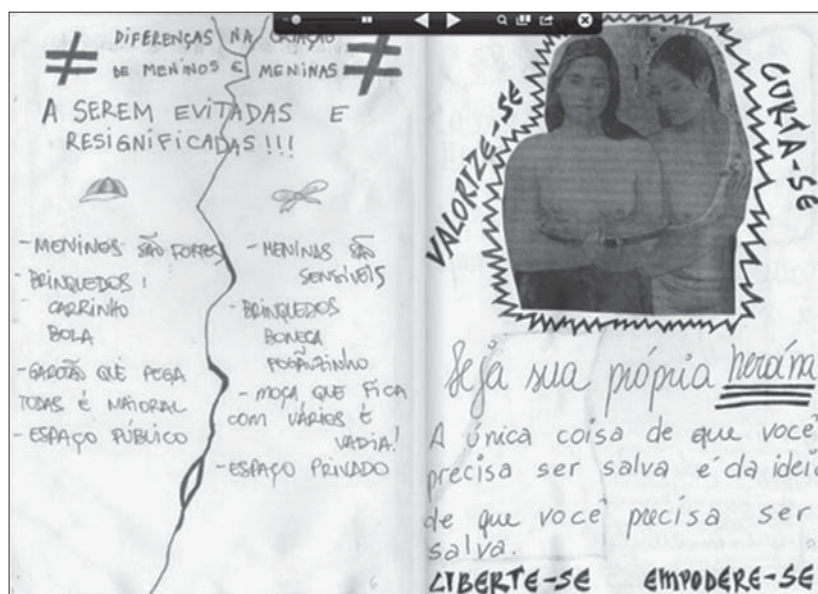 DIFERENÇAS NA CRIAÇÃO
DE MENINOS E MENINAS
A SEREM EVITADAS E
RESIGNIFICADAS!!!
- MENINOS SÃO FORTES
- BRINQUEDOS:
CARRINHO
BOLA
- GAROTÃO QUE PEGA
TODAS É MAIORAL
- ESPAÇO PÚBLICO
- MENINAS SÃO
SENSÍVEIS
- BRINQUEDOS
BONECA
FOGÃOZINHO
- MOÇA QUE FICA
COM VÁRIOS É
VADIA!
- ESPAÇO PRIVADO
6
VALORIZE-SE
CURTA-SE
Seja sua própria heroína
A única coisa de que você
precisa ser salva é da ideia
de que você precisa ser
salva.
LIBERTE-SE EMPODERE-SE